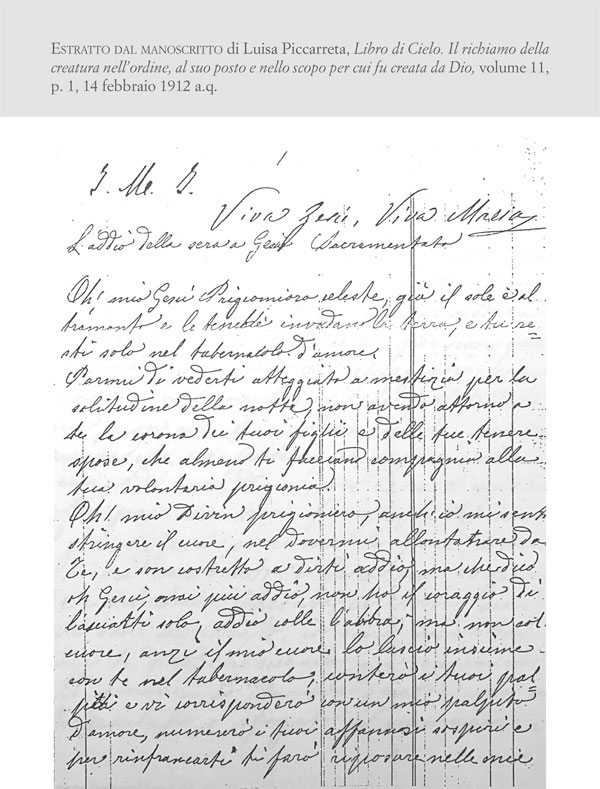 ESTRATTO DAL MANOSCRITTO di Luisa Piccarreta, Libro di Cielo. Il richiamo della
creatura nell'ordine, al suo posto e nello scopo per cui fu creata da Dio, volume 11,
p. 1, 14 febbraio 1912 a.q.
J. M. J.
Viva Gesù, Viva Maria
L'addio della sera a Gesù Sacramentato
Oh! mio Gesù Prigioniero celeste, già il sole è al
tramonto e le tenebre invadano la terra, e tu re=
sti solo nel tabernacolo d'amore.
Parmi di vederti atteggiato a mestizia per la
solitudine della notte, non avendo attorno a
te la corona dei tuoi figlii e delle tue tenere
spose, che almeno ti facciano compagnia alla
tua volontaria prigionia.
Oh! mio Divin prigioniero, anch'io mi sento
stringere il cuore, nel dovermi allontanare da
Te, e son costretto a dirti addio, ma che dico
oh Gesù, mai più addio, non ho il coraggio di
lasciarti solo, addio colle labbra, ma non col
cuore, anzi il mio cuore lo lascio insieme
con te nel tabernacolo, conterò i tuoi pal=
piti e vi corrisponderò con un mio palpito
d'amore, numererò i tuoi affannosi sospiri e
per rinfrancarti ti farò riposare nelle mie